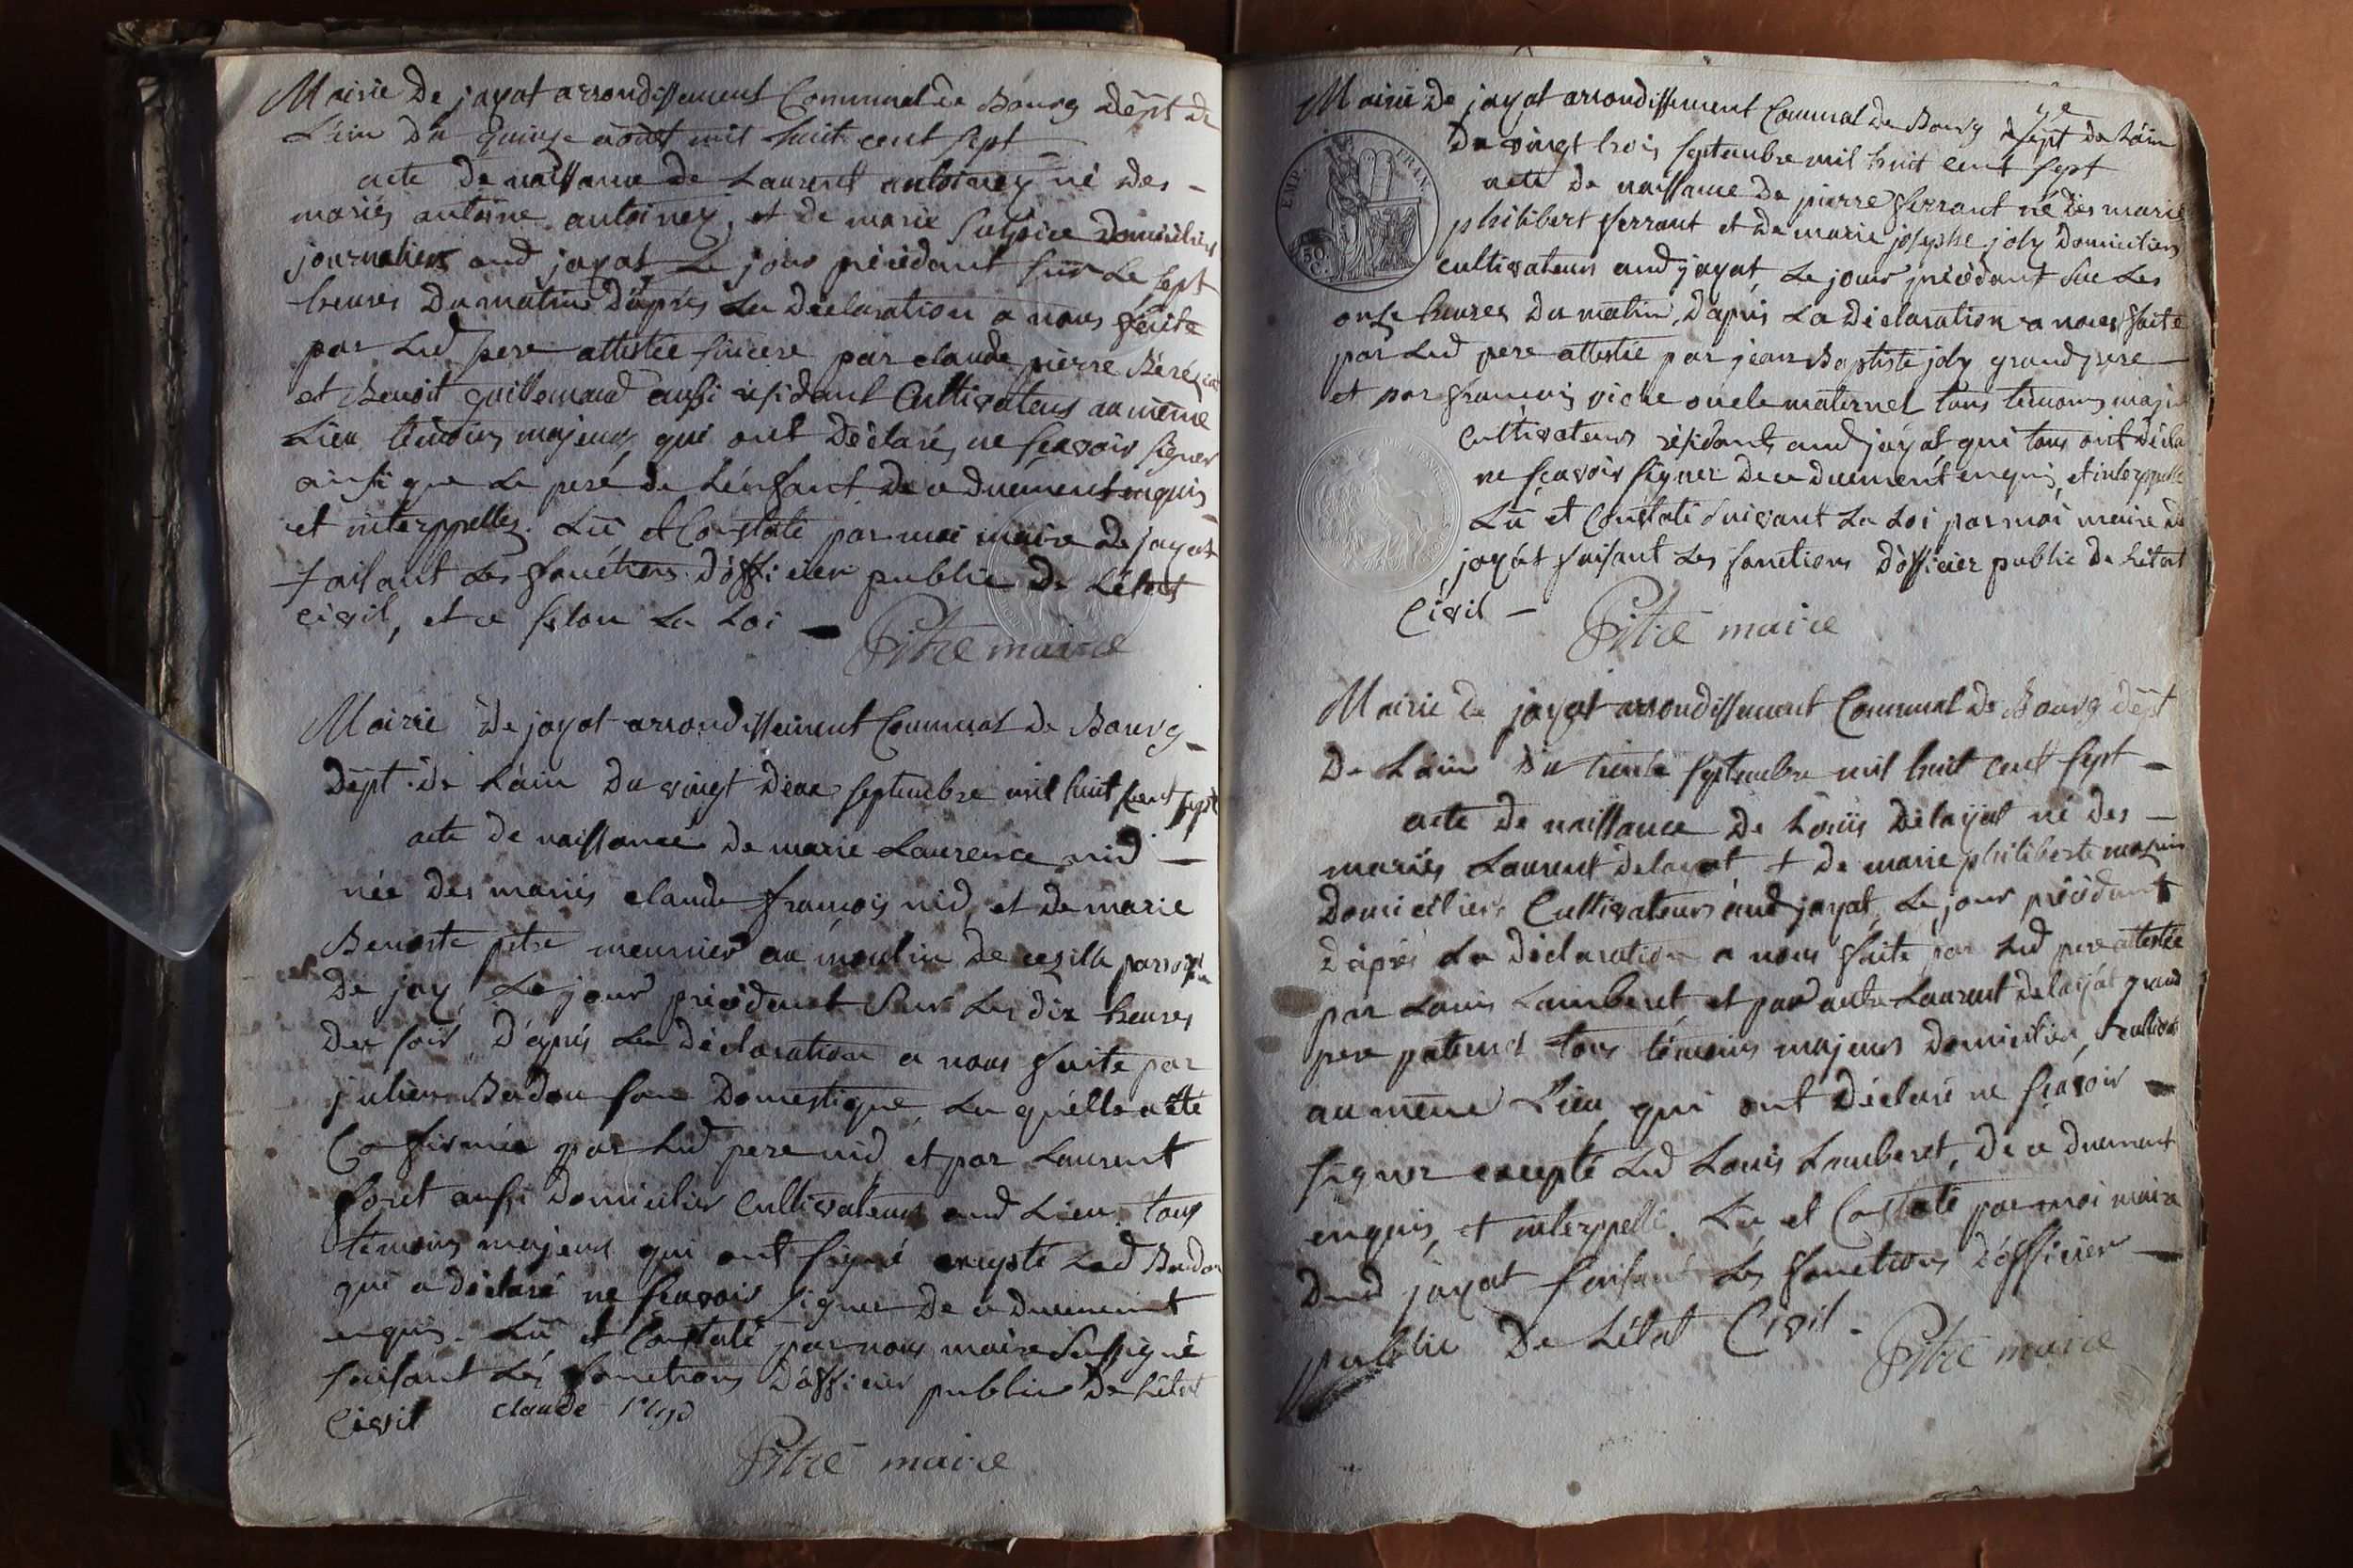 Mairie De jayat arrondissement Communal de Bourg dépt de
L'ain du quinze août mil huit cent sept
acte De naissance de Laurent antoinez né des
mariés antoine antoinez, et de marie Sulpice Domiciliés
journaliers aud jayat, Le jour précédant sur Le sept
heures Du matin D'après La Déclaration a nous faite
par Led pere attestée sincere par claude pierre
et Benoit guillemaud aussi résidant Cultivateurs au même
Lieu témoins majeurs, qui ont Déclaré ne sçavoir signer
ainsi que Le peré de L'enfant De ce duement enquis
et interppellez. Lü et Constaté par moi maire de jayat
faisant Les fonctions d'officier public De L'état
civil, et ce selon La Loi
Pitre maire
Mairie De jayat arrondissement Communal De Bourg
Dépt. De L'ain Du vingt deux septembre mil huit cent sept
acte de naissance De marie Laurence nid
née Des mariés claude françois nid, et De marie
Benoite pitre meunier au moulin De cezille
De jay, Le jour précédant Sur Les dix heures
Du soir, D'après La Déclaration a nous faite par
julien Badou son Domestique, La quélle a été
Confirmée par Led pere nid, et par Laurent
foret aussi Domicilier Cultivateurs aud Lieu, tous
témoins majeurs qui ont signé excepté Led Badou
qui a déclaré ne sçavoir signer De ce duement
enquis. Lü et Constaté par nous maire Sussigné
faisant Lés fonctions D'officier public De L'état
Civil claude nid
Pitre maire
Mairie De jayat arrondissement Communal De Bourg dépt De L'ain
Du vingt trois septembre mil huit cent sept
EMP. FRAN.
50 C.
acte De naissance De pierre ferrant né Des mariés
philibert ferrant et De marie josephe joly Domiciliers
cultivateurs aud jayat, Le jour précédant sur Les
onze heures Du matin, D'après La Déclaration a nous faite
par Led pere attestée par jean Baptiste joly grand pere
et par françois viche oncle maternel tous témoins
Cultivateurs résidants aud jayat qui tous ont
ne sçavoir signer De ce duement enquis, et
Lü et Constaté Suivant La Loi par moi maire de
jayat faisant Les fonctions D'officier public De L'état
Civil
Pitre maire
Mairie De jayat arrondissement Communal De Bourg dépt
De L'ain Du trente septembre mil huit cent sept
acte De naissance De Loüis Delayat né Des
mariés Laurent Delayat, et De marie philiberte
Domiciliers Cultivateurs aud jayat, Le jour précédant
D'après La Déclaration a nous faite par Led pere attestée
par Louis Lamberet, et par autre Laurent Delayat grand
pere paternel tous témoins majeurs Domiciliers,
au même Lieu, qui ont Déclaré ne sçavoir
signer excepté Led Louis Lamberet, De ce duement
enquis, et interppellé. Lü et Constaté par moi maire
Dud jayat faisant Les fonctions D'officier
public De L'état Civil
Pitre maire